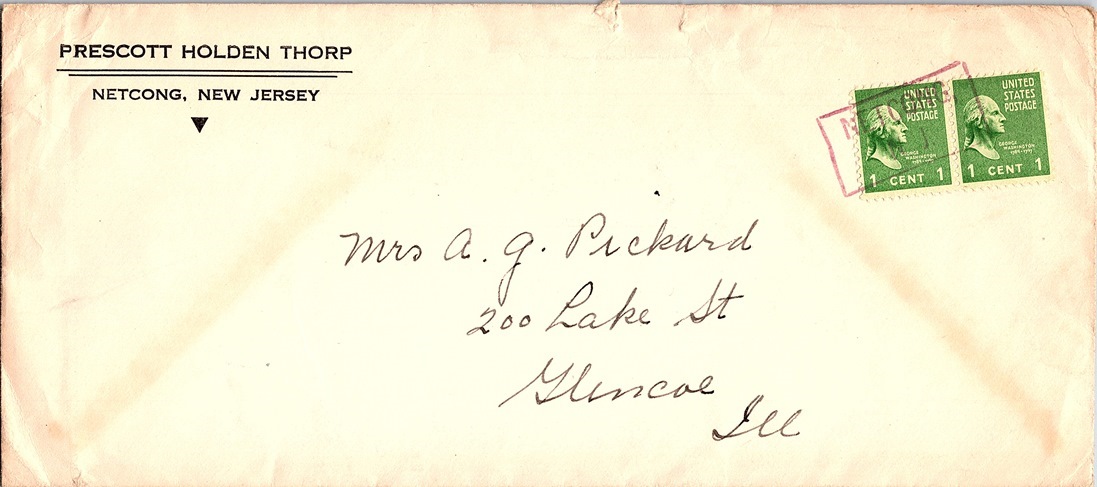 PRESCOTT HOLDEN THORP
NETCONG, NEW JERSEY
UNITED
STATES
POSTAGE
GEORGE
WASHINGTON
1 CENT 1
UNITED
STATES
POSTAGE
GEORGE
WASHINGTON
1 CENT 1
Mrs A. G. Pickard
200 Lake St
Glencoe
Ill